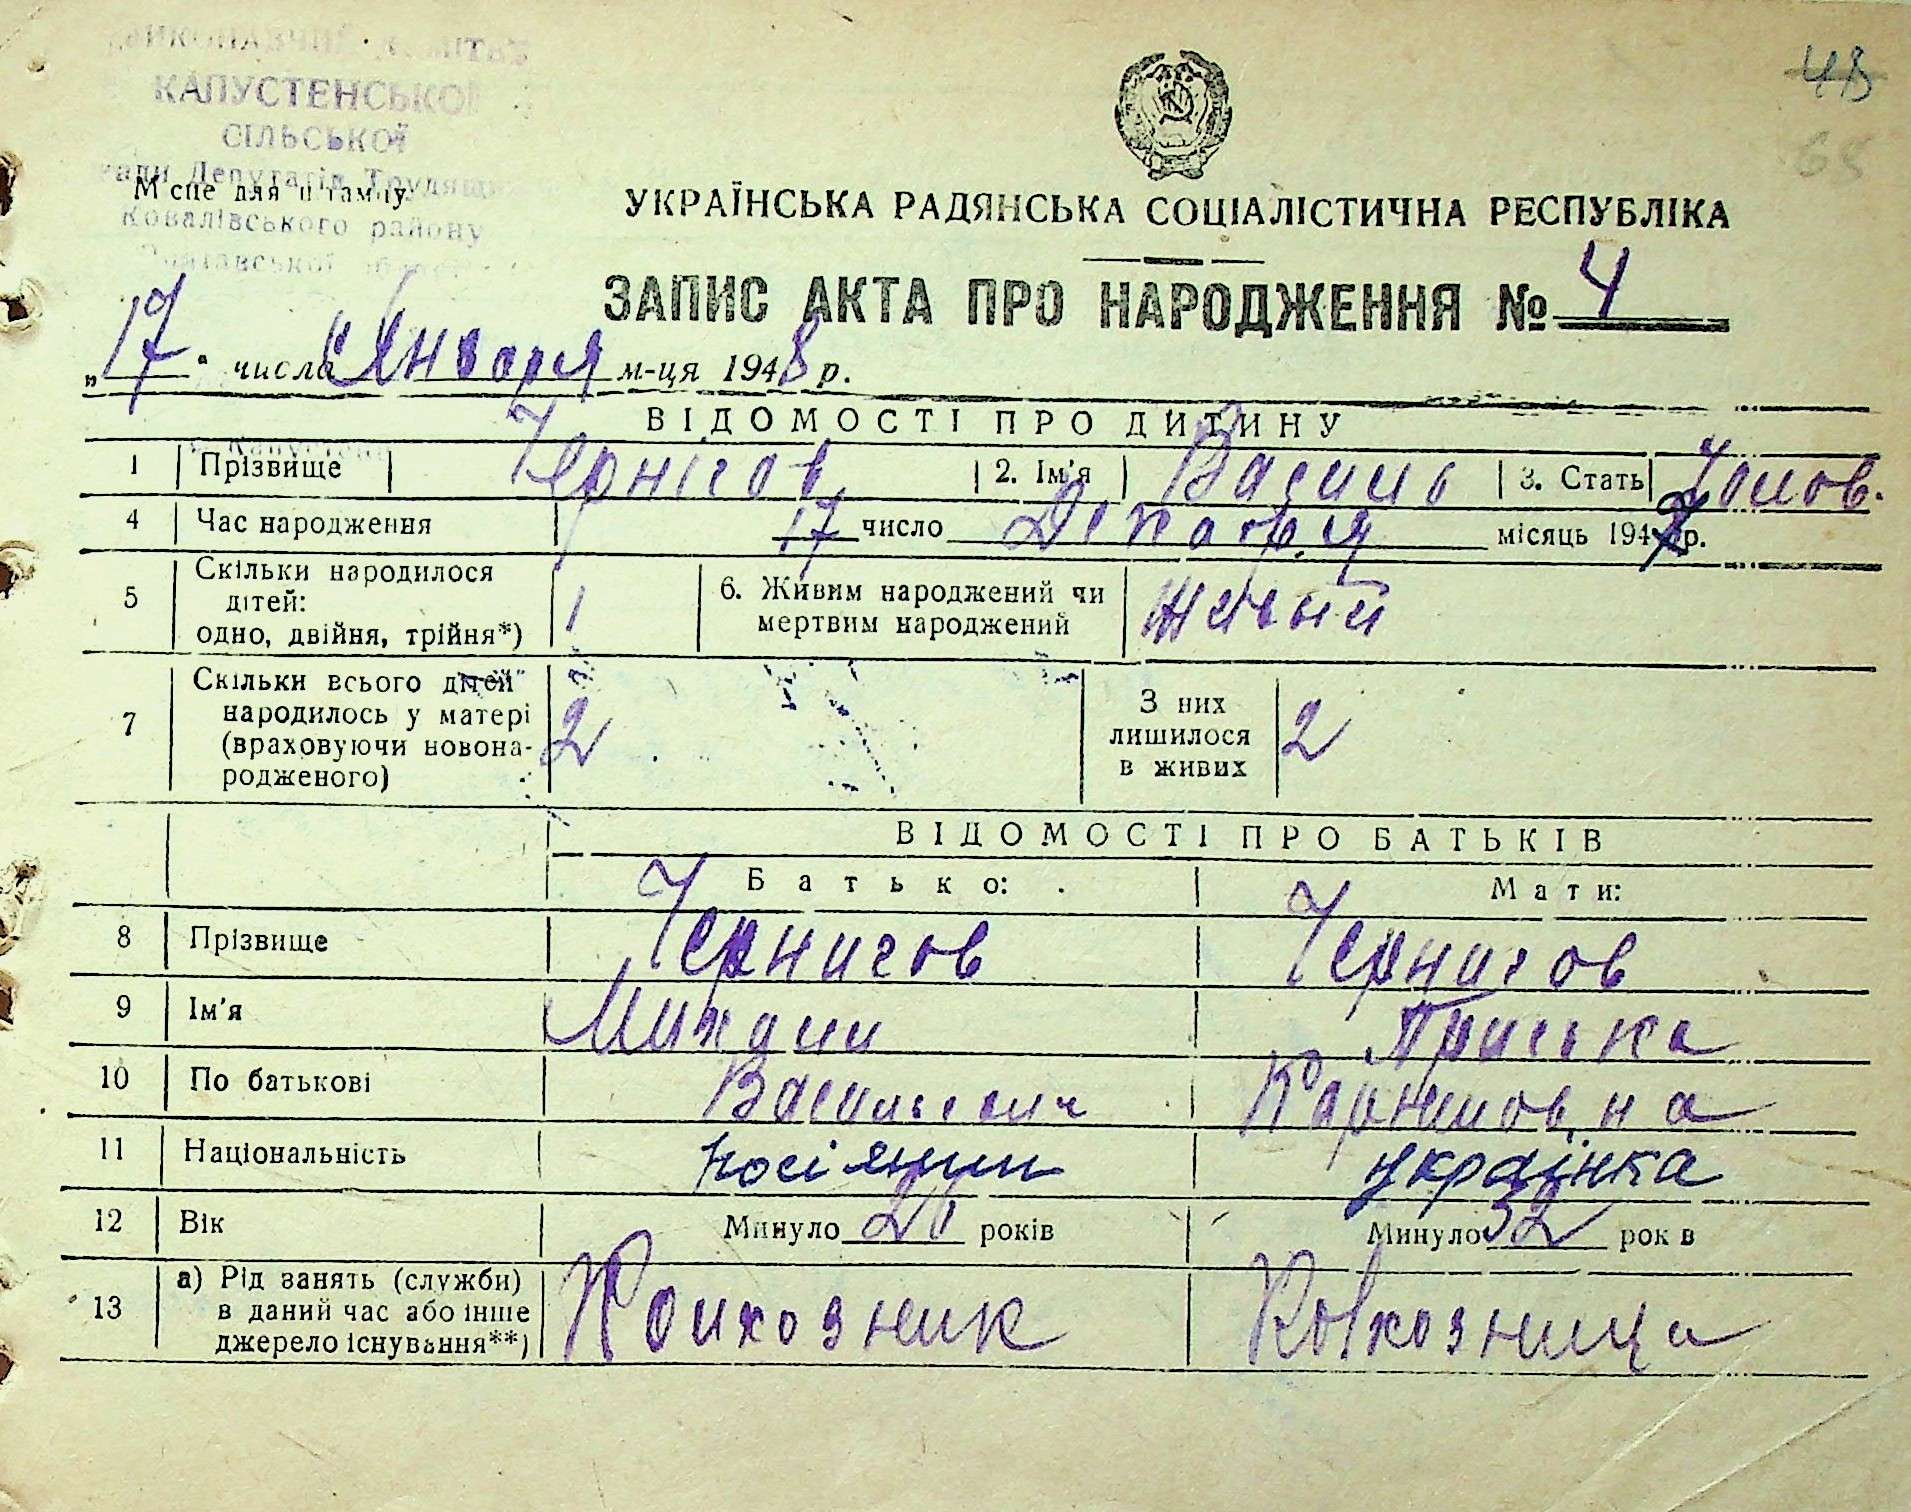 ВИКОНАВЧИЙ КОМІТЕТ
КАПУСТЕНСЬКОЇ
СІЛЬСЬКОЇ
Ради Депутатів Трудящих
Ковалівського району
Полтавської області
48
65
Місце для штампу
УКРАЇНСЬКА РАДЯНСЬКА СОЦІАЛІСТИЧНА РЕСПУБЛІКА
ЗАПИС АКТА ПРО НАРОДЖЕННЯ № 4
„17" числа Января м-ця 1948 р.
ВІДОМОСТІ ПРО ДИТИНУ
1 Прізвище Чернігов 2. Ім'я Василь 3. Стать Чолов.
4 Час народження 17 число Декабря місяць 1947 р.
5 Скільки народилося дітей: одно, двійня, трійня*) 1 6. Живим народжений чи мертвим народжений Живый
7 Скільки всього дітей народилось у матері (враховуючи новонародженого) 2 З них лишилося в живих 2
ВІДОМОСТІ ПРО БАТЬКІВ
Батько: Мати:
8 Прізвище Чернигов Чернигов
9 Ім'я Михаил Приська
10 По батькові Васильевич Карниловна
11 Національність росіянин українка
12 Вік Минуло років Минуло 32 років
13 а) Рід занять (служби) в даний час або інше джерело існування**) Колхозник Колхозница